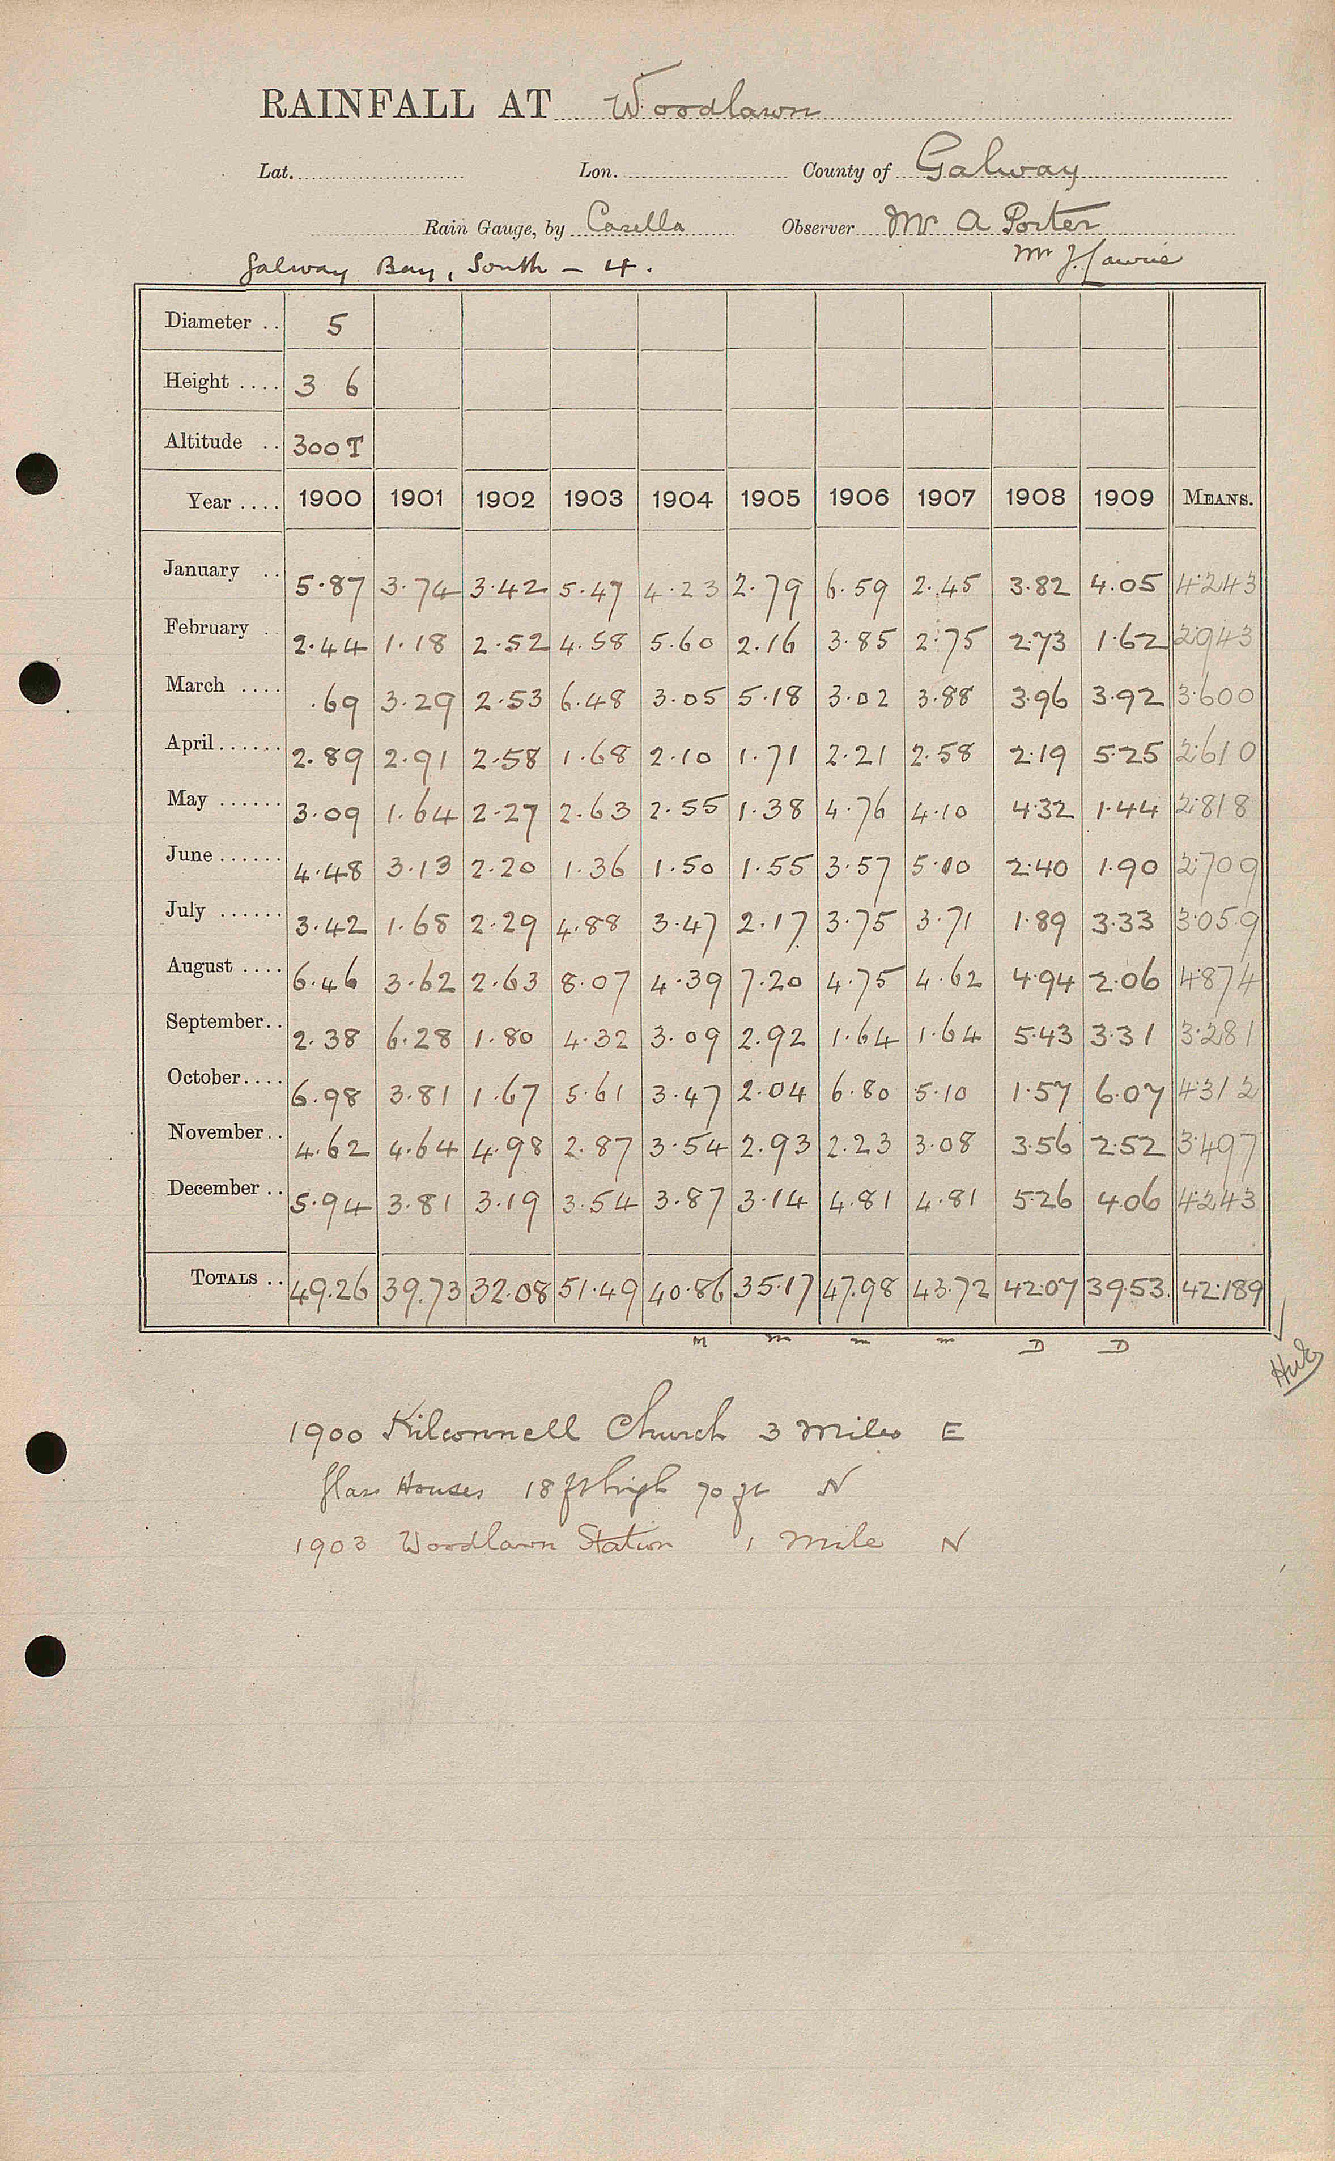 RAINFALL AT Woodlawn
Lat. Lon. County of Galway
Rain Gauge, by Casella Observer Mr A Porter
Galway Bay, South - 4. Mr J. Lawrie
Diameter .. 5
Height .... 3 6
Altitude .. 300 T
Year .... 1900 1901 1902 1903 1904 1905 1906 1907 1908 1909 MEANS.
January .. 5.87 3.74 3.42 5.47 4.23 2.79 6.59 2.45 3.82 4.05 4.243
February .. 2.44 1.18 2.52 4.58 5.60 2.16 3.85 2.75 2.73 1.62 2.943
March .... .69 3.29 2.53 6.48 3.05 5.18 3.02 3.88 3.96 3.92 3.600
April...... 2.89 2.91 2.58 1.68 2.10 1.71 2.21 2.58 2.19 5.25 2.610
May ...... 3.09 1.64 2.27 2.63 2.55 1.38 4.76 4.10 4.32 1.44 2.818
June ...... 4.48 3.13 2.20 1.36 1.50 1.55 3.57 5.00 2.40 1.90 2.709
July ...... 3.42 1.68 2.29 4.88 3.47 2.17 3.75 3.71 1.89 3.33 3.059
August .... 6.46 3.62 2.63 8.07 4.39 7.20 4.75 4.62 4.94 2.06 4.874
September.. 2.38 6.28 1.80 4.32 3.09 2.92 1.64 1.64 5.43 3.31 3.281
October.... 6.98 3.81 1.67 5.61 3.47 2.04 6.80 5.10 1.57 6.07 4.312
November.. 4.62 4.64 4.98 2.87 3.54 2.93 2.23 3.08 3.56 2.52 3.497
December .. 5.94 3.81 3.19 3.54 3.87 3.14 4.81 4.81 5.26 4.06 4.243
TOTALS .. 49.26 39.73 32.08 51.49 40.86 35.17 47.98 43.72 42.07 39.53 42.189
M m m m D D
1900 Kilconnell Church 3 Miles E
Glass Houses 18 ft high 70 ft N
1903 Woodlawn Station 1 Mile N